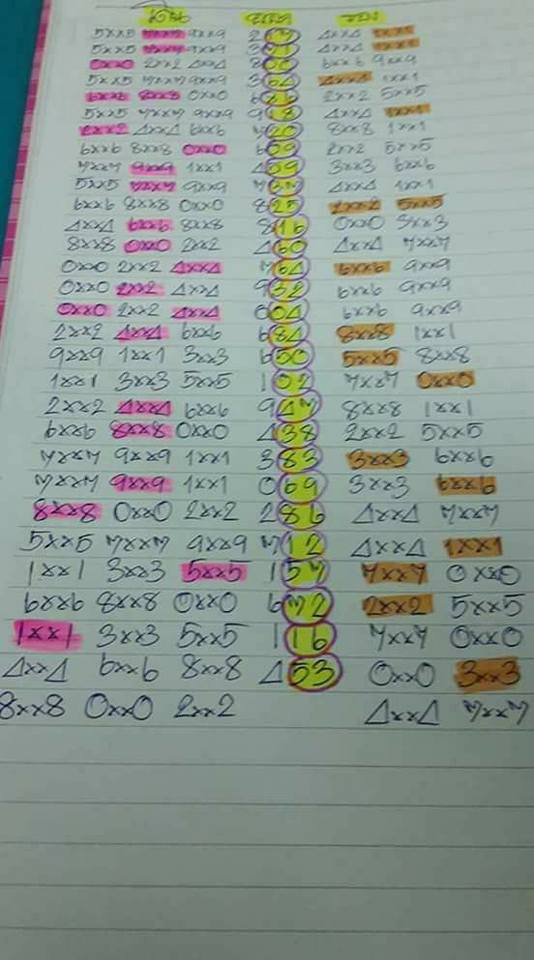 5xx5 7xx7 9xx9 4xx4 1xx1
5xx5 7xx7 9xx9 4xx4 1xx1
0xx0 2xx2 4xx4 6xx6 9xx9
5xx5 7xx7 9xx9 364 4xx4 1xx1
6xx6 8xx8 0xx0 2xx2 5xx5
5xx5 7xx7 9xx9 918 4xx4 1xx1
2xx2 4xx4 6xx6 720 8xx8 1xx1
6xx6 8xx8 0xx0 609 2xx2 5xx5
7xx7 9xx9 1xx1 459 3xx3 6xx6
5xx5 7xx7 9xx9 737 4xx4 1xx1
6xx6 8xx8 0xx0 825 2xx2 5xx5
4xx4 6xx6 8xx8 816 0xx0 3xx3
8xx8 0xx0 2xx2 460 4xx4 7xx7
0xx0 2xx2 4xx4 764 6xx6 9xx9
0xx0 2xx2 4xx4 932 6xx6 9xx9
0xx0 2xx2 4xx4 004 6xx6 9xx9
2xx2 4xx4 6xx6 684 8xx8 1xx1
9xx9 1xx1 3xx3 650 5xx5 8xx8
1xx1 3xx3 5xx5 102 7xx7 0xx0
2xx2 4xx4 6xx6 947 8xx8 1xx1
6xx6 8xx8 0xx0 438 2xx2 5xx5
7xx7 9xx9 1xx1 383 3xx3 6xx6
7xx7 9xx9 1xx1 069 3xx3 6xx6
8xx8 0xx0 2xx2 286 4xx4 7xx7
5xx5 7xx7 9xx9 712 4xx4 1xx1
1xx1 3xx3 5xx5 157 7xx7 0xx0
6xx6 8xx8 0xx0 672 2xx2 5xx5
1xx1 3xx3 5xx5 116 7xx7 0xx0
4xx4 6xx6 8xx8 453 0xx0 3xx3
8xx8 0xx0 2xx2 4xx4 7xx7